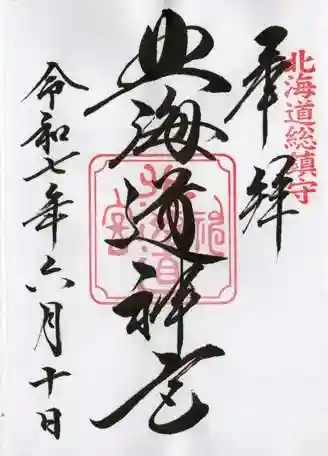 奉拝
北海道総鎮守
北海道神宮
北海道神宮
令和七年六月十日